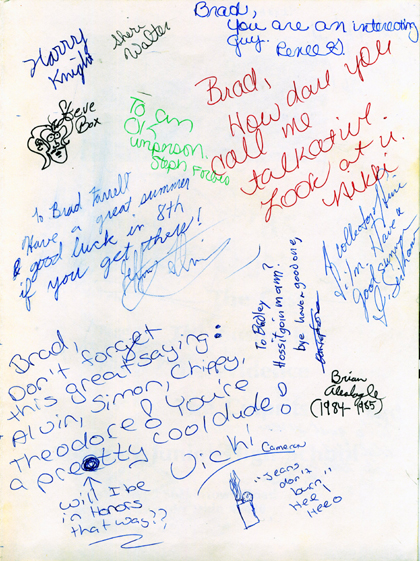 Brad,
you are an interesting
guy.
Renee G
Harry
Knight
Sheri
Walter
Steve
Box
To an
Ok
unperson.
Steph Forbes
Brad,
How dare you
call me
talkative.
Look at u.
Nikki
To Brad Farrell
Have a great summer
& good luck in 8th
if you get there!
Have a
good summer
To Bradley
Hossitgoinmann?
bye have a good one,
Brad,
Don't forget
this great saying:
Alvin, Simon, Chippy,
Theodore & You're
a pretty cool dude!
Vicki
will I be
in Honors
that way??
Brian
(1984-1985)
Cameron
"Jeans
don't
burn"
Hee!
Heeo